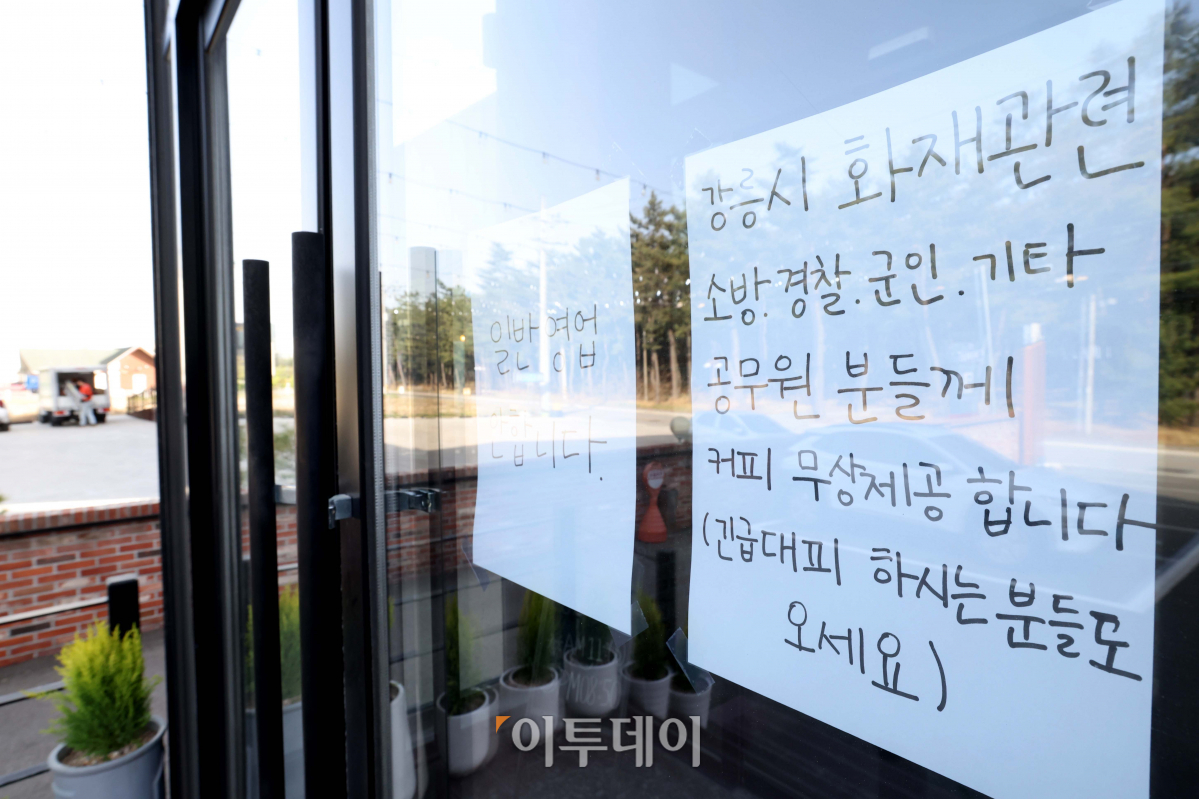 일반영업
안합니다.
강릉시 화재관련
소방.경찰.군인.기타
공무원 분들께
커피 무상제공 합니다
(긴급대피 하시는 분들도
오세요)
이투데이